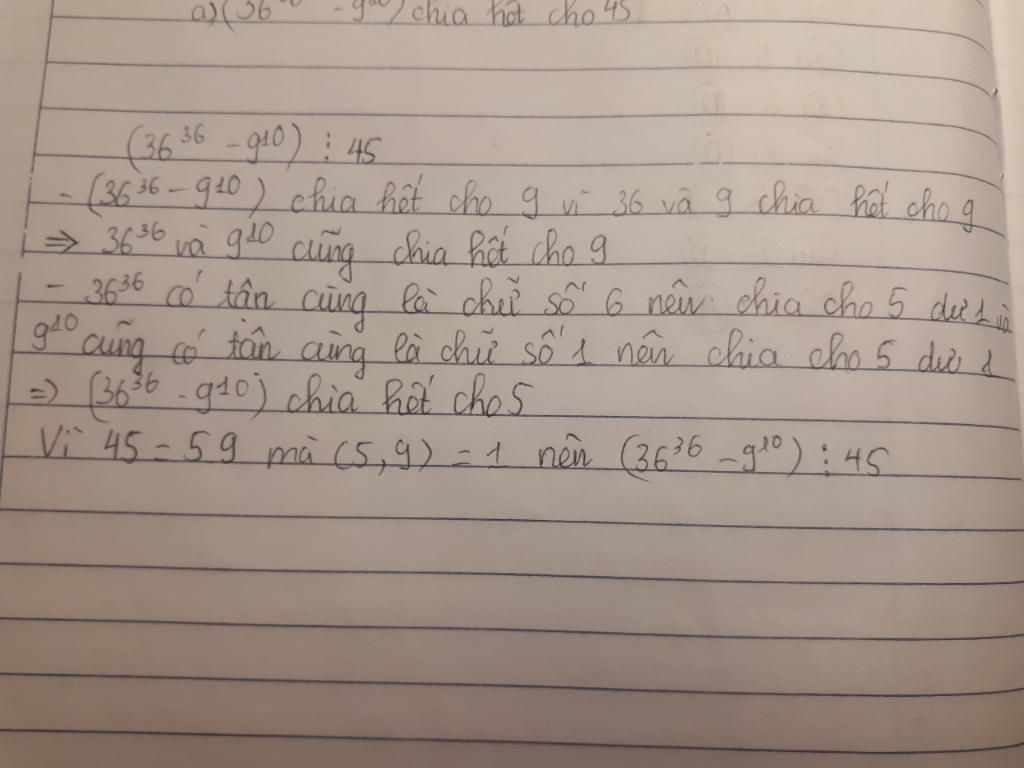 a) (36³⁶ - 9¹⁰) chia hết cho 45
(36³⁶ - 9¹⁰) ⋮ 45
- (36³⁶ - 9¹⁰) chia hết cho 9 vì 36 và 9 chia hết cho 9
⇒ 36³⁶ và 9¹⁰ cũng chia hết cho 9
- 36³⁶ có tận cùng là chữ số 6 nên chia cho 5 dư 1 và
9¹⁰ cũng có tận cùng là chữ số 1 nên chia cho 5 dư 1
⇒ (36³⁶ - 9¹⁰) chia hết cho 5
Vì 45 = 5 9 mà (5, 9) = 1 nên (36³⁶ - 9¹⁰) ⋮ 45